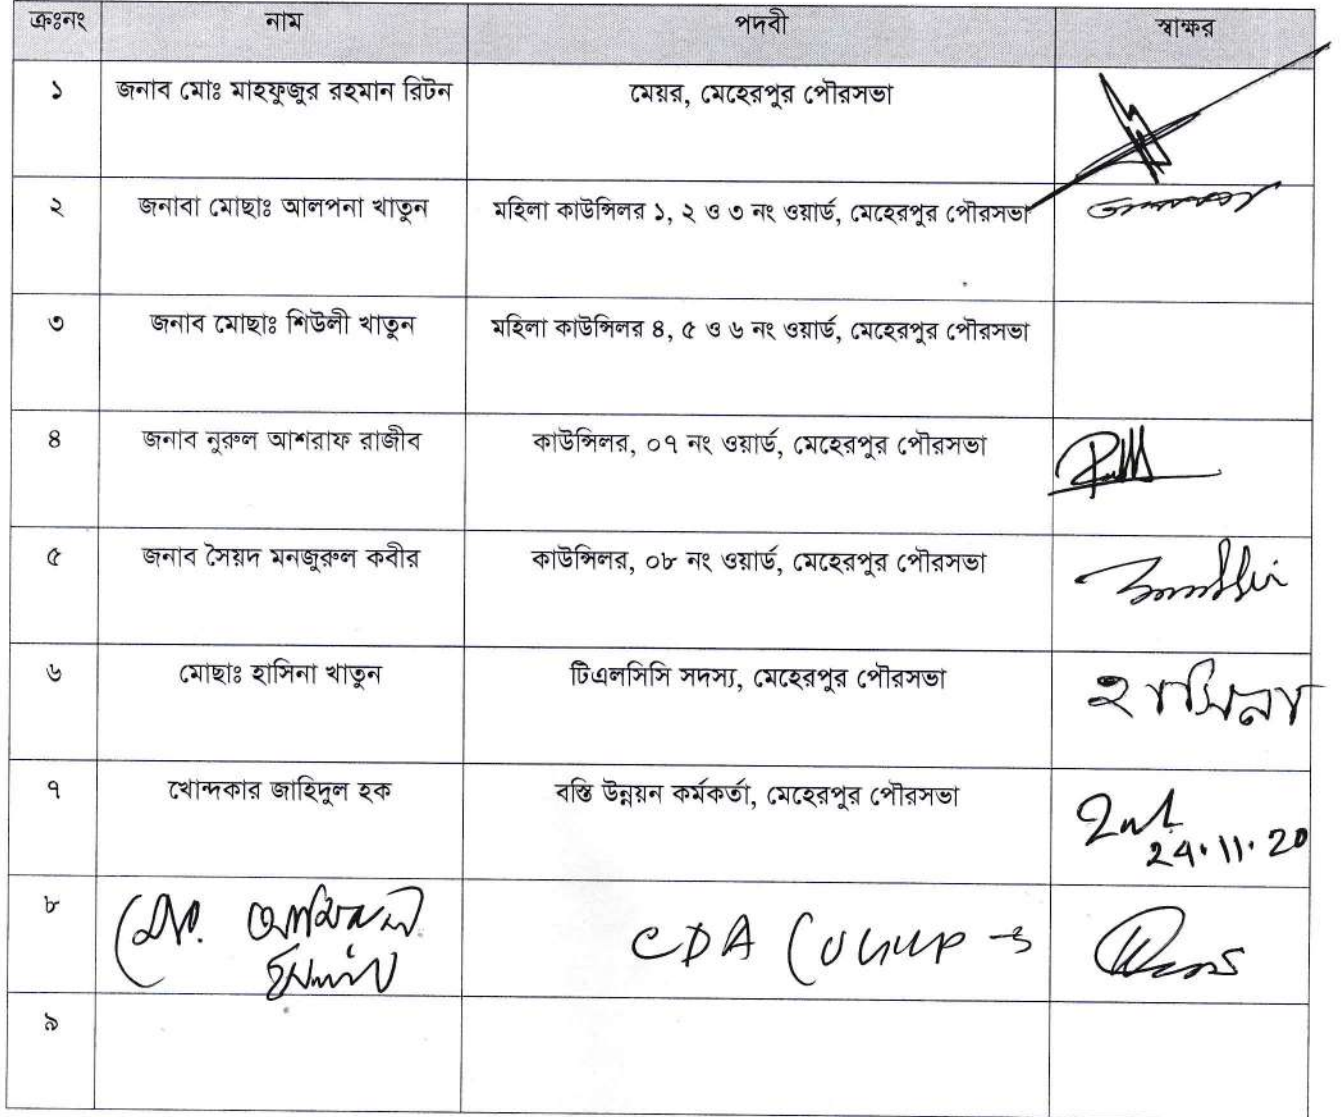 ক্রঃনং নাম পদবী স্বাক্ষর
১ জনাব মোঃ মাহফুজুর রহমান রিটন মেয়র, মেহেরপুর পৌরসভা
২ জনাবা মোছাঃ আলপনা খাতুন মহিলা কাউন্সিলর ১, ২ ও ৩ নং ওয়ার্ড, মেহেরপুর পৌরসভা
৩ জনাব মোছাঃ শিউলী খাতুন মহিলা কাউন্সিলর ৪, ৫ ও ৬ নং ওয়ার্ড, মেহেরপুর পৌরসভা
৪ জনাব নুরুল আশরাফ রাজীব কাউন্সিলর, ০৭ নং ওয়ার্ড, মেহেরপুর পৌরসভা
৫ জনাব সৈয়দ মনজুরুল কবীর কাউন্সিলর, ০৮ নং ওয়ার্ড, মেহেরপুর পৌরসভা
৬ মোছাঃ হাসিনা খাতুন টিএলসিসি সদস্য, মেহেরপুর পৌরসভা হাসিনা
৭ খোন্দকার জাহিদুল হক বস্তি উন্নয়ন কর্মকর্তা, মেহেরপুর পৌরসভা
24.11.20
৮ মো. CDA
৯